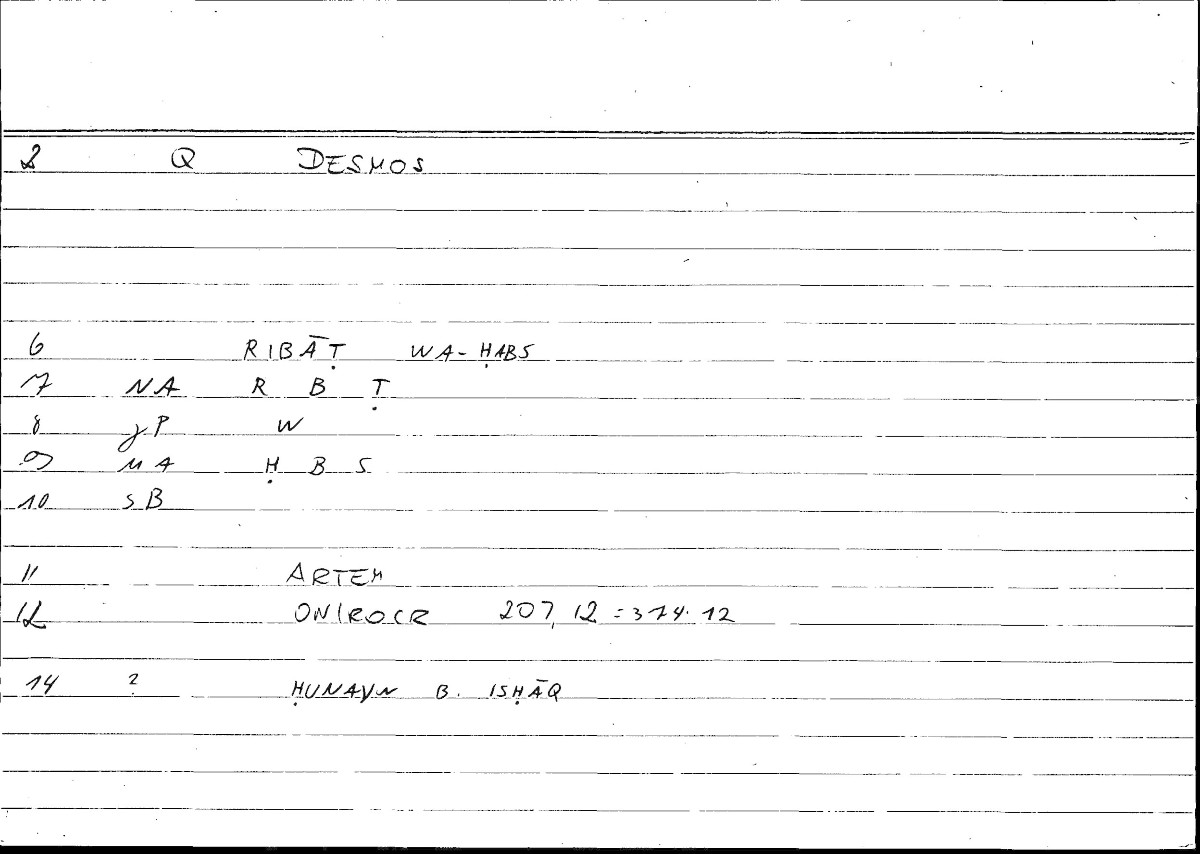 2 Q DESMOS
6 RIBĀṬ WA-ḤABS
7 NA R B Ṭ
8 γP W
9 MA Ḥ B S
10 SB
11 ARTEM
12 ONIROCR 207,12 = 374.12
14 ? ḤUNAYN B. ISḤĀQ